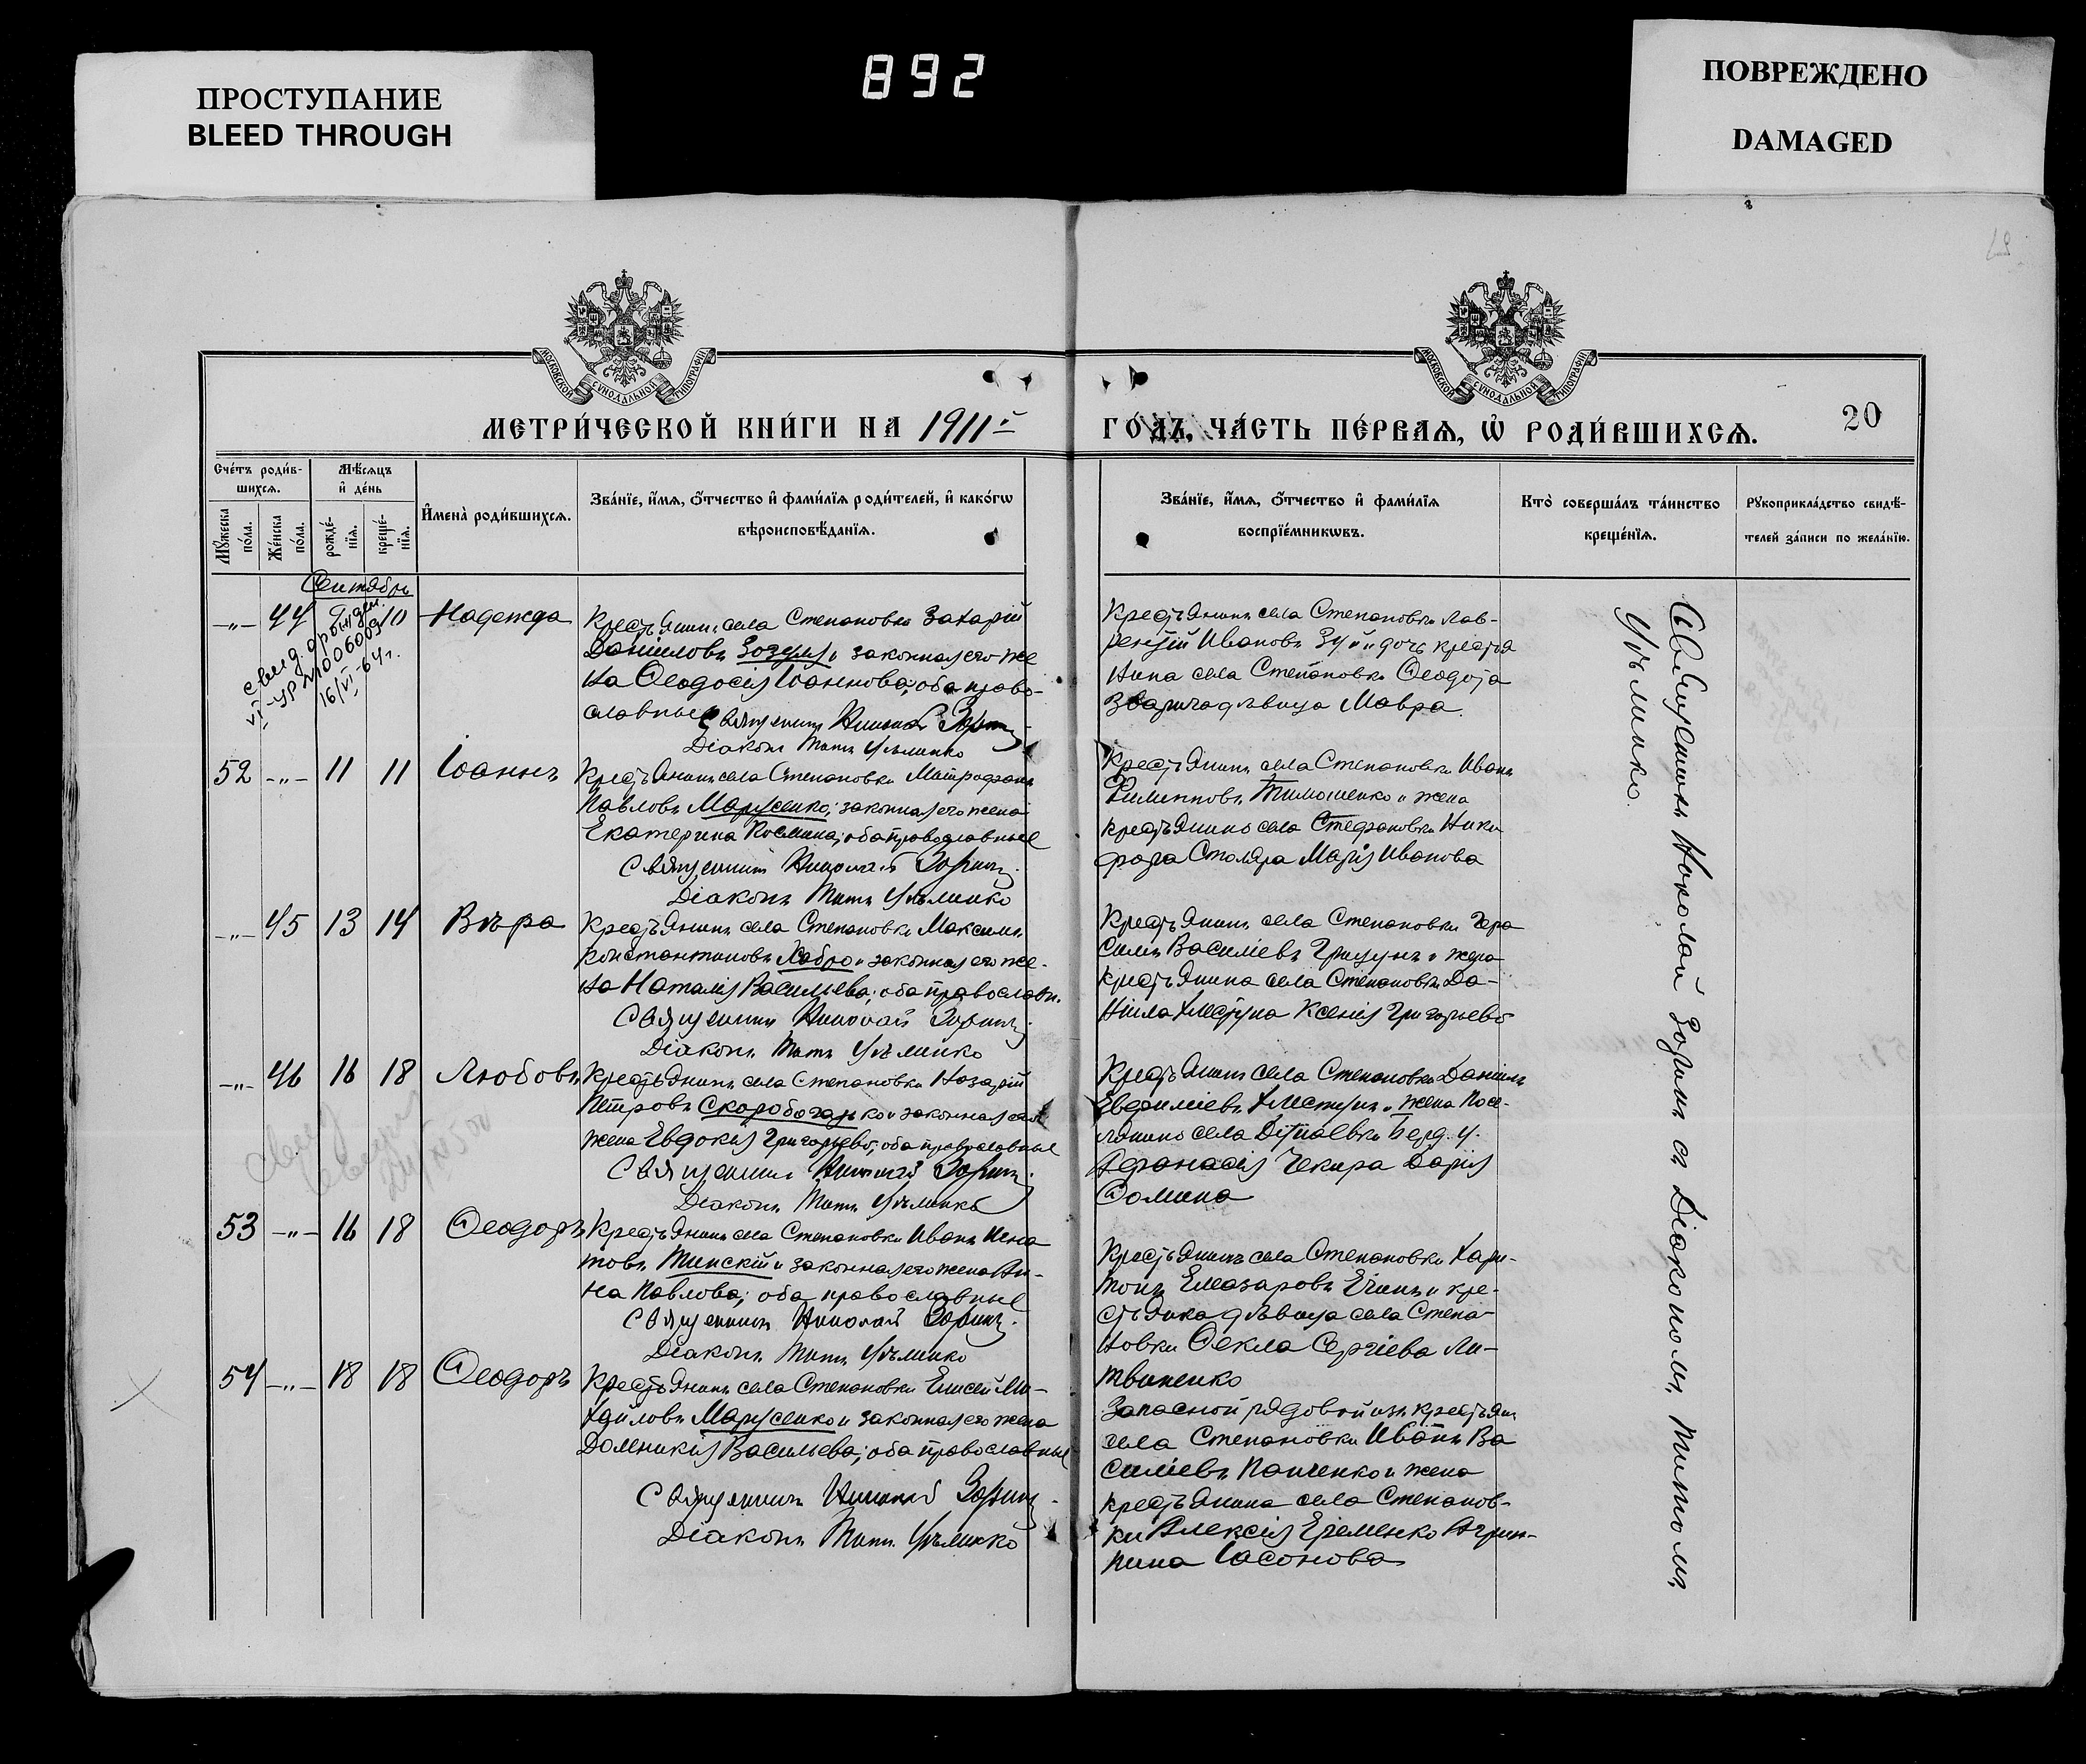 ПРОСТУПАНИЕ
BLEED THROUGH
892
ПОВРЕЖДЕНО
DAMAGED
МОСКОВСКОЙ СѴНОДАЛЬНОЙ ТИПОГРАФІИ
МОСКОВСКОЙ СѴНОДАЛЬНОЙ ТИПОГРАФІИ
МЕТРИ́ЧЕСКОЙ КНИ́ГИ НА 1911 й
ГО́ДЪ, ЧА́СТЬ ПЕ́РВАѦ, Ѡ҆ РОДИ́ВШИХСѦ.
20
Сче́тъ роди́в-
шихсѧ.
Мѣ́сѧцъ
и҆ де́нь
Мꙋ́жеска
по́ла.
Же́нска
по́ла.
рожде́-
нїѧ.
креще́-
нїѧ.
И҆мена̀ роди́вшихсѧ.
Зва́нїе, и҆́мѧ, ѻ҆́тчество и҆ фами́лїѧ роди́телей, и҆ како́гѡ
вѣроисповѣ́данїѧ.
Зва́нїе, и҆́мѧ, ѻ҆́тчество и҆ фами́лїѧ
воспрїе́мникѡвъ.
Кто̀ соверша́лъ та́инство
креще́нїѧ.
Рꙋкоприкла́дство свидѣ́-
телей за́писи по жела́нїю.
Сентябрь
-„- 44 10 Надежда
16/VI-64 г.
Крестьянинъ села Степановки Захарій
Даніиловъ Зозуля и законная его же
на Ѳеодосія Іоаннова; оба право-
славные Священникъ Николай Зоринъ
Діаконъ Титъ Уѣлинко
Крестьянинъ села Степановки Лав-
рентій Ивановъ и дочь крестья
нина села Степановки Ѳеодота
Зварича дѣвица Мавра.
52 -„- 11 11 Іоаннъ
Крестьянинъ села Степановки Митрофанъ
Павловъ Марусенко; законная его жена
Екатерина Космина; оба православные
Священникъ Николай Зоринъ.
Діаконъ Титъ Уѣлинко
Крестьянинъ села Степановки Иванъ
Филипповъ Тимошенко и жена
крестьянина села Стефановки Ники
фора Столяра Марія Иванова
-„- 45 13 14 Вѣра
Крестьянинъ села Степановки Максимъ
Константиновъ Хабро и законная его же-
на Наталія Васильева; оба православн.
Священникъ Николай Зоринъ.
Діаконъ Титъ Уѣлинко
Крестьянинъ села Степановки Гера
симъ Василіевъ Грицунъ и жена
крестьянина села Степановки Да-
ніила Хмстуна Ксенія Григорьева
-„- 46 16 18 Любовь
Крестьянинъ села Степановки Назарій
Петровъ Скоробогатько и законная его
жена Евдокія Григорьева; оба православные
Священникъ Николай Зоринъ.
Діаконъ Титъ Уѣлинко
Крестьянинъ села Степановки Даніилъ
Евфиміевъ и жена посе-
лянина села Берд. у.
Афанасія Чекира Дарія
Ѳомина
53 -„- 16 18 Ѳеодоръ
Крестьянинъ села Степановки Иванъ Игна
товъ Тинскій и законная его жена Ан-
на Павлова; оба православные
Священникъ Николай Зоринъ.
Діаконъ Титъ Уѣлинко
Крестьянинъ села Степановки Хари-
тонъ Елеазаровъ и кре-
стьянка дѣвица села Степа-
новки Ѳекла Сергіева Ли-
твиненко
54 -„- 18 18 Ѳеодоръ
Крестьянинъ села Степановки Елисей Ми-
хайловъ Марусенко и законная его жена
Домникія Васильева; оба православные
Священникъ Николай Зоринъ.
Діаконъ Титъ Уѣлинко
Запасной рядовой изъ крестьян
села Степановки Иванъ Ва
силіевъ Панченко и жена
крестьянина села Степанов-
ки Алексія Еременко Агрип-
пина Іасонова
Священникъ Николай Зоринъ съ Діакономъ Титомъ
Уѣлинко.